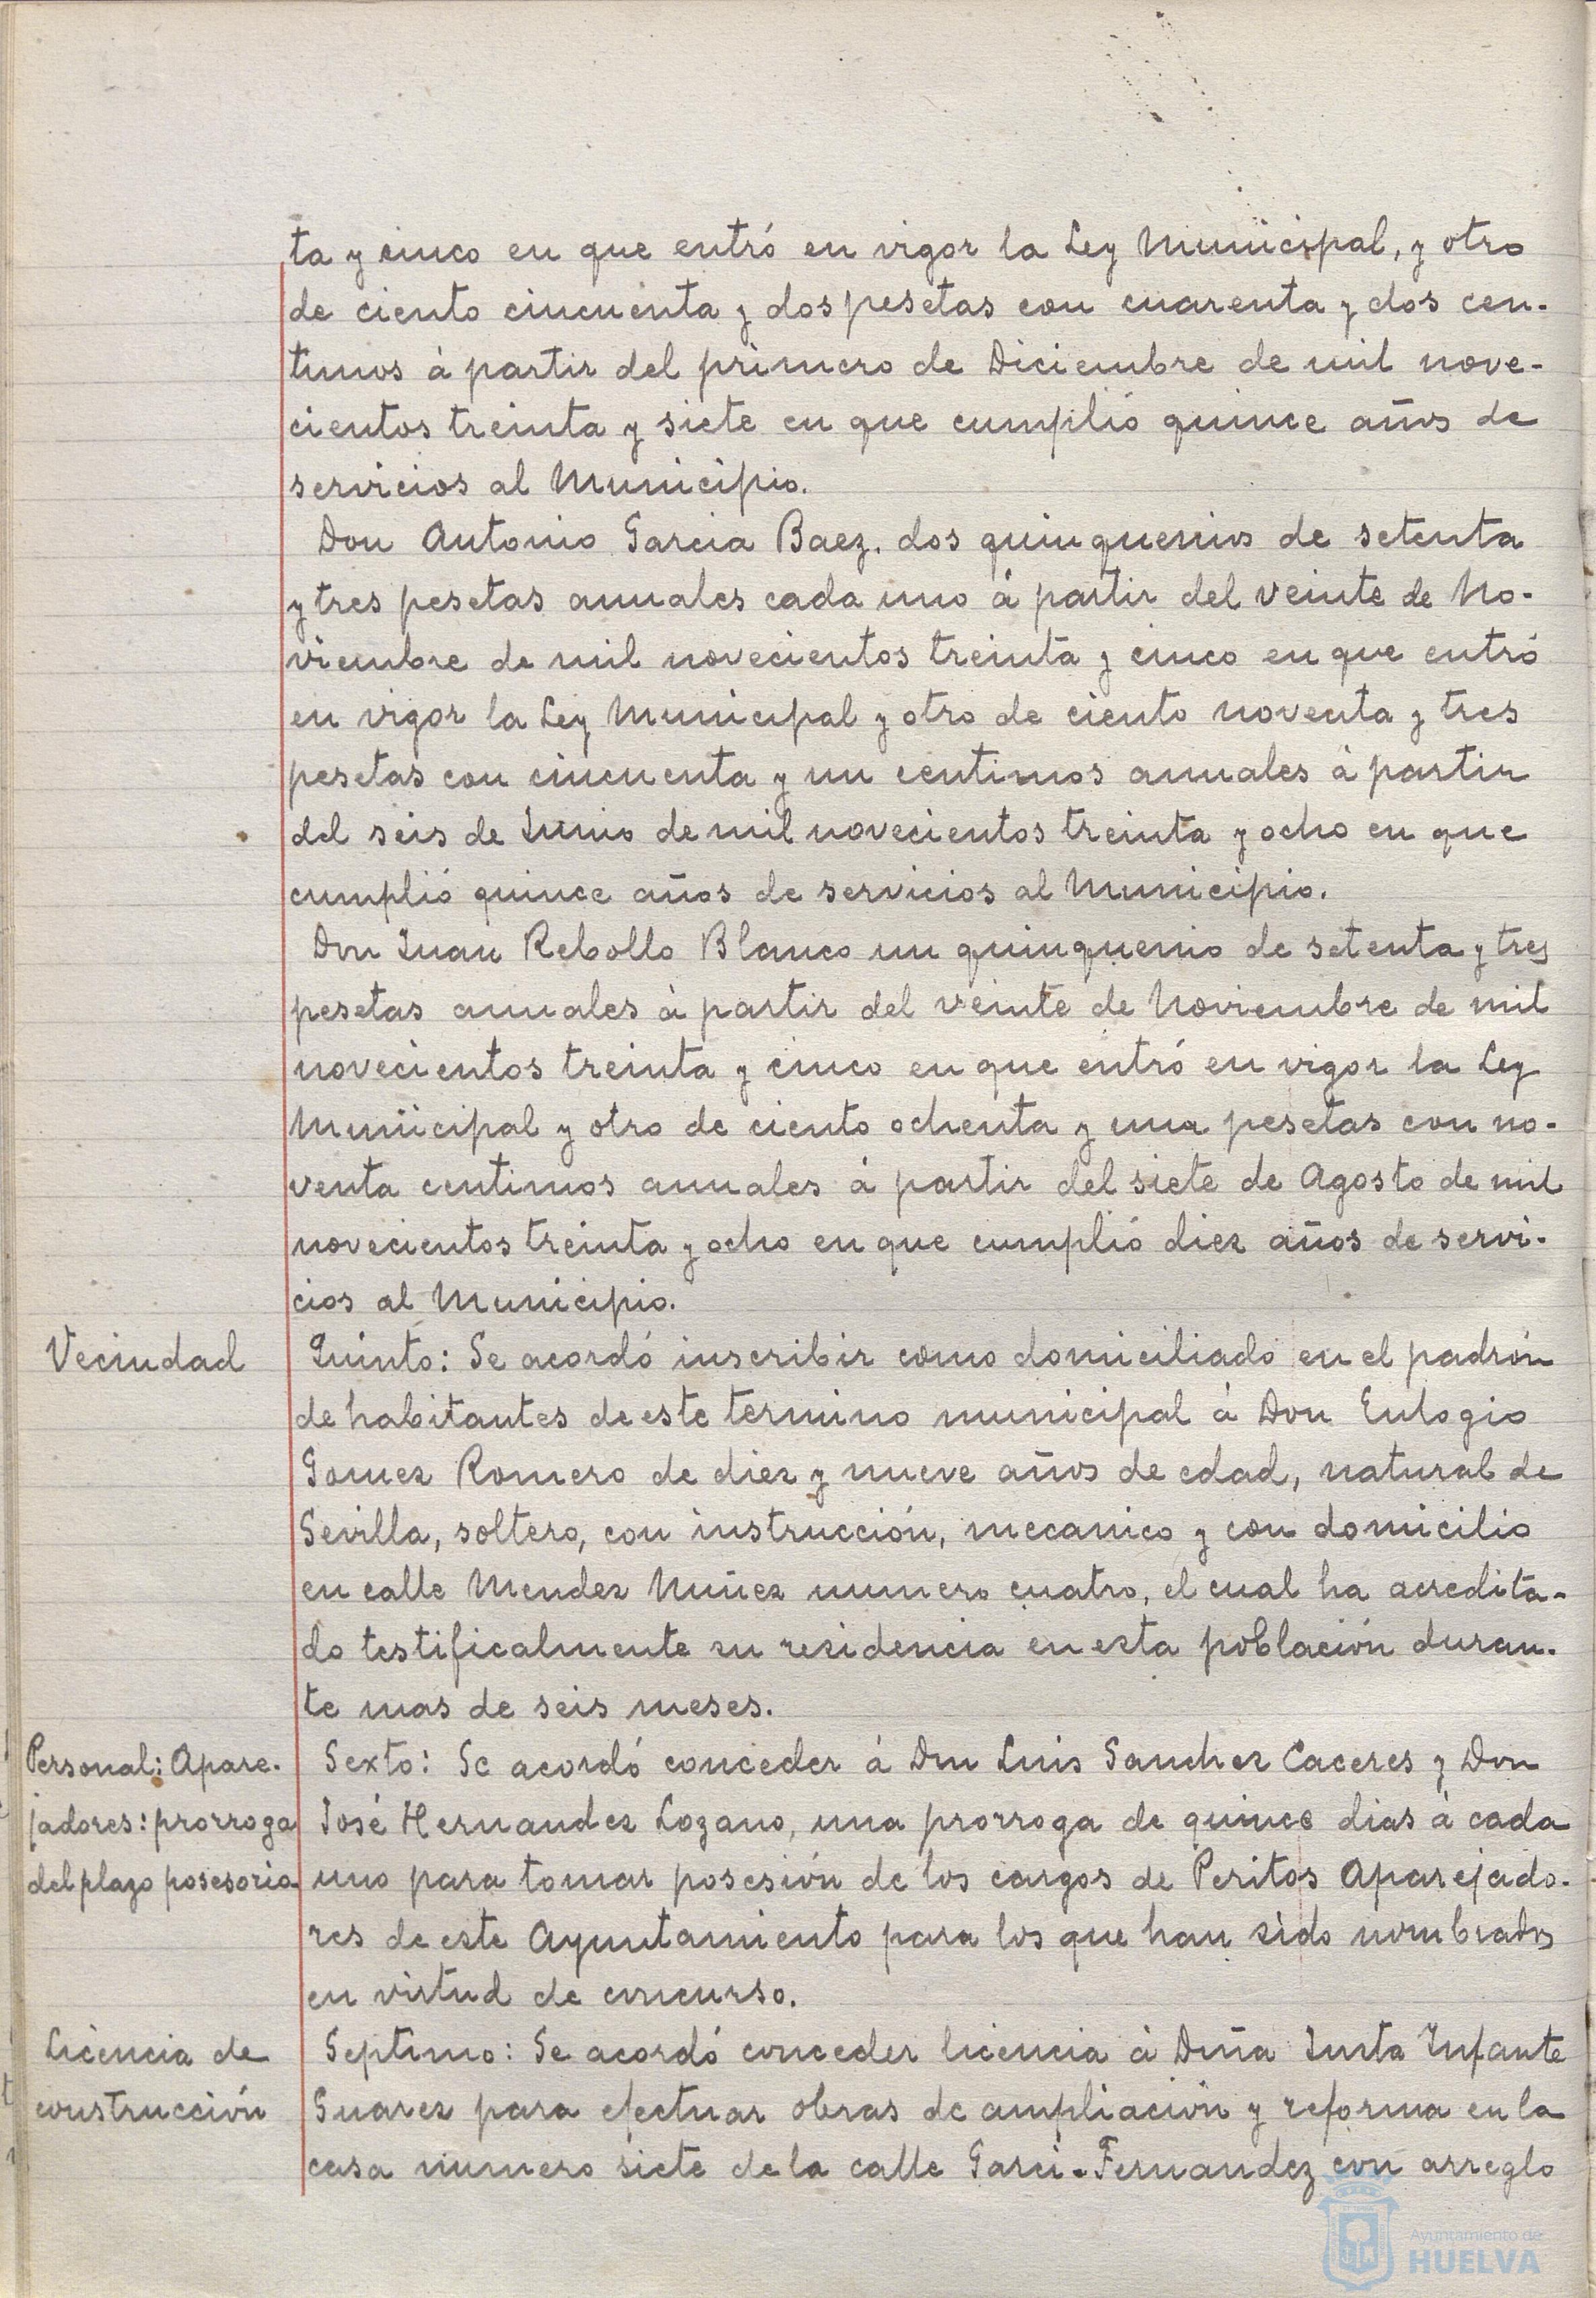 ta y cinco en que entró en vigor la Ley Municipal, y otro
de ciento cincuenta y dos pesetas con cuarenta y dos cen-
timos á partir del primero de Diciembre de mil nove-
cientos treinta y siete en que cumplió quince años de
servicios al Municipio.
Don Antonio Garcia Baez, dos quinquenios de setenta
y tres pesetas anuales cada uno á partir del veinte de No-
viembre de mil novecientos treinta y cinco en que entró
en vigor la Ley Municipal y otro de ciento noventa y tres
pesetas con cincuenta y un centimos anuales á partir
del seis de Junio de mil novecientos treinta y ocho en que
cumplió quince años de servicios al Municipio.
Don Juan Rebollo Blanco un quinquenio de setenta y tres
pesetas anuales á partir del veinte de Noviembre de mil
novecientos treinta y cinco en que entró en vigor la Ley
Municipal y otro de ciento ochenta y una pesetas con no-
venta centimos anuales á partir del siete de Agosto de mil
novecientos treinta y ocho en que cumplió diez años de servi-
cios al Municipio.
Vecindad
Quinto: Se acordó inscribir como domiciliado en el padrón
de habitantes de este termino municipal á Don Eulogio
Gomez Romero de diez y nueve años de edad, natural de
Sevilla, soltero, con instrucción, mecanico y con domicilio
en calle Mendez Nuñez numero cuatro, el cual ha acredita-
do testificalmente su residencia en esta población duran-
te mas de seis meses.
Personal: Apare-
jadores: prorroga
del plazo posesorio
Sexto: Se acordó conceder á Don Luis Sanchez Caceres y Don
José Hernandez Lozano, una prorroga de quince dias á cada
uno para tomar posesión de los cargos de Peritos Aparejado-
res de este Ayuntamiento para los que han sido nombrados
en virtud de concurso.
Licencia de
construcción
Septimo: Se acordó conceder licencia á Doña Justa Infante
Suarez para efectuar obras de ampliación y reforma en la
casa numero siete de la calle Garci-Fernandez con arreglo
Ayuntamiento de
HUELVA